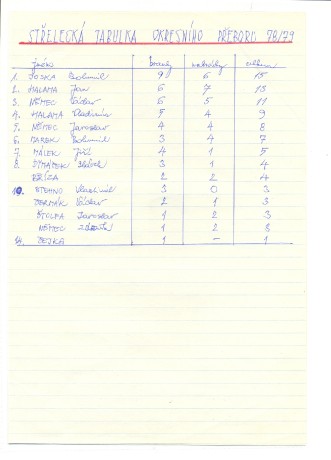 STŘELECKÁ TABULKA OKRESNÍHO PŘEBORU 78/79
jméno branky nahrávky celkem
1. Bohumil 9 6 15
2. MALAMA Jan 6 7 13
3. NĚMEC Václav 6 5 11
4. MALAMA Vladimír 5 4 9
5. NĚMEC Jaroslav 4 4 8
6. MAREK Bohumil 3 4 7
7. MÁLEK Jiří 4 1 5
8. 3 1 4
BŘÍZA 2 2 4
10. STEHNO Vlastimil 3 0 3
ČERMÁK Václav 2 1 3
ŠTOLFA Jaroslav 1 2 3
NĚMEC Zdeněk 1 2 3
14. 1 – 1